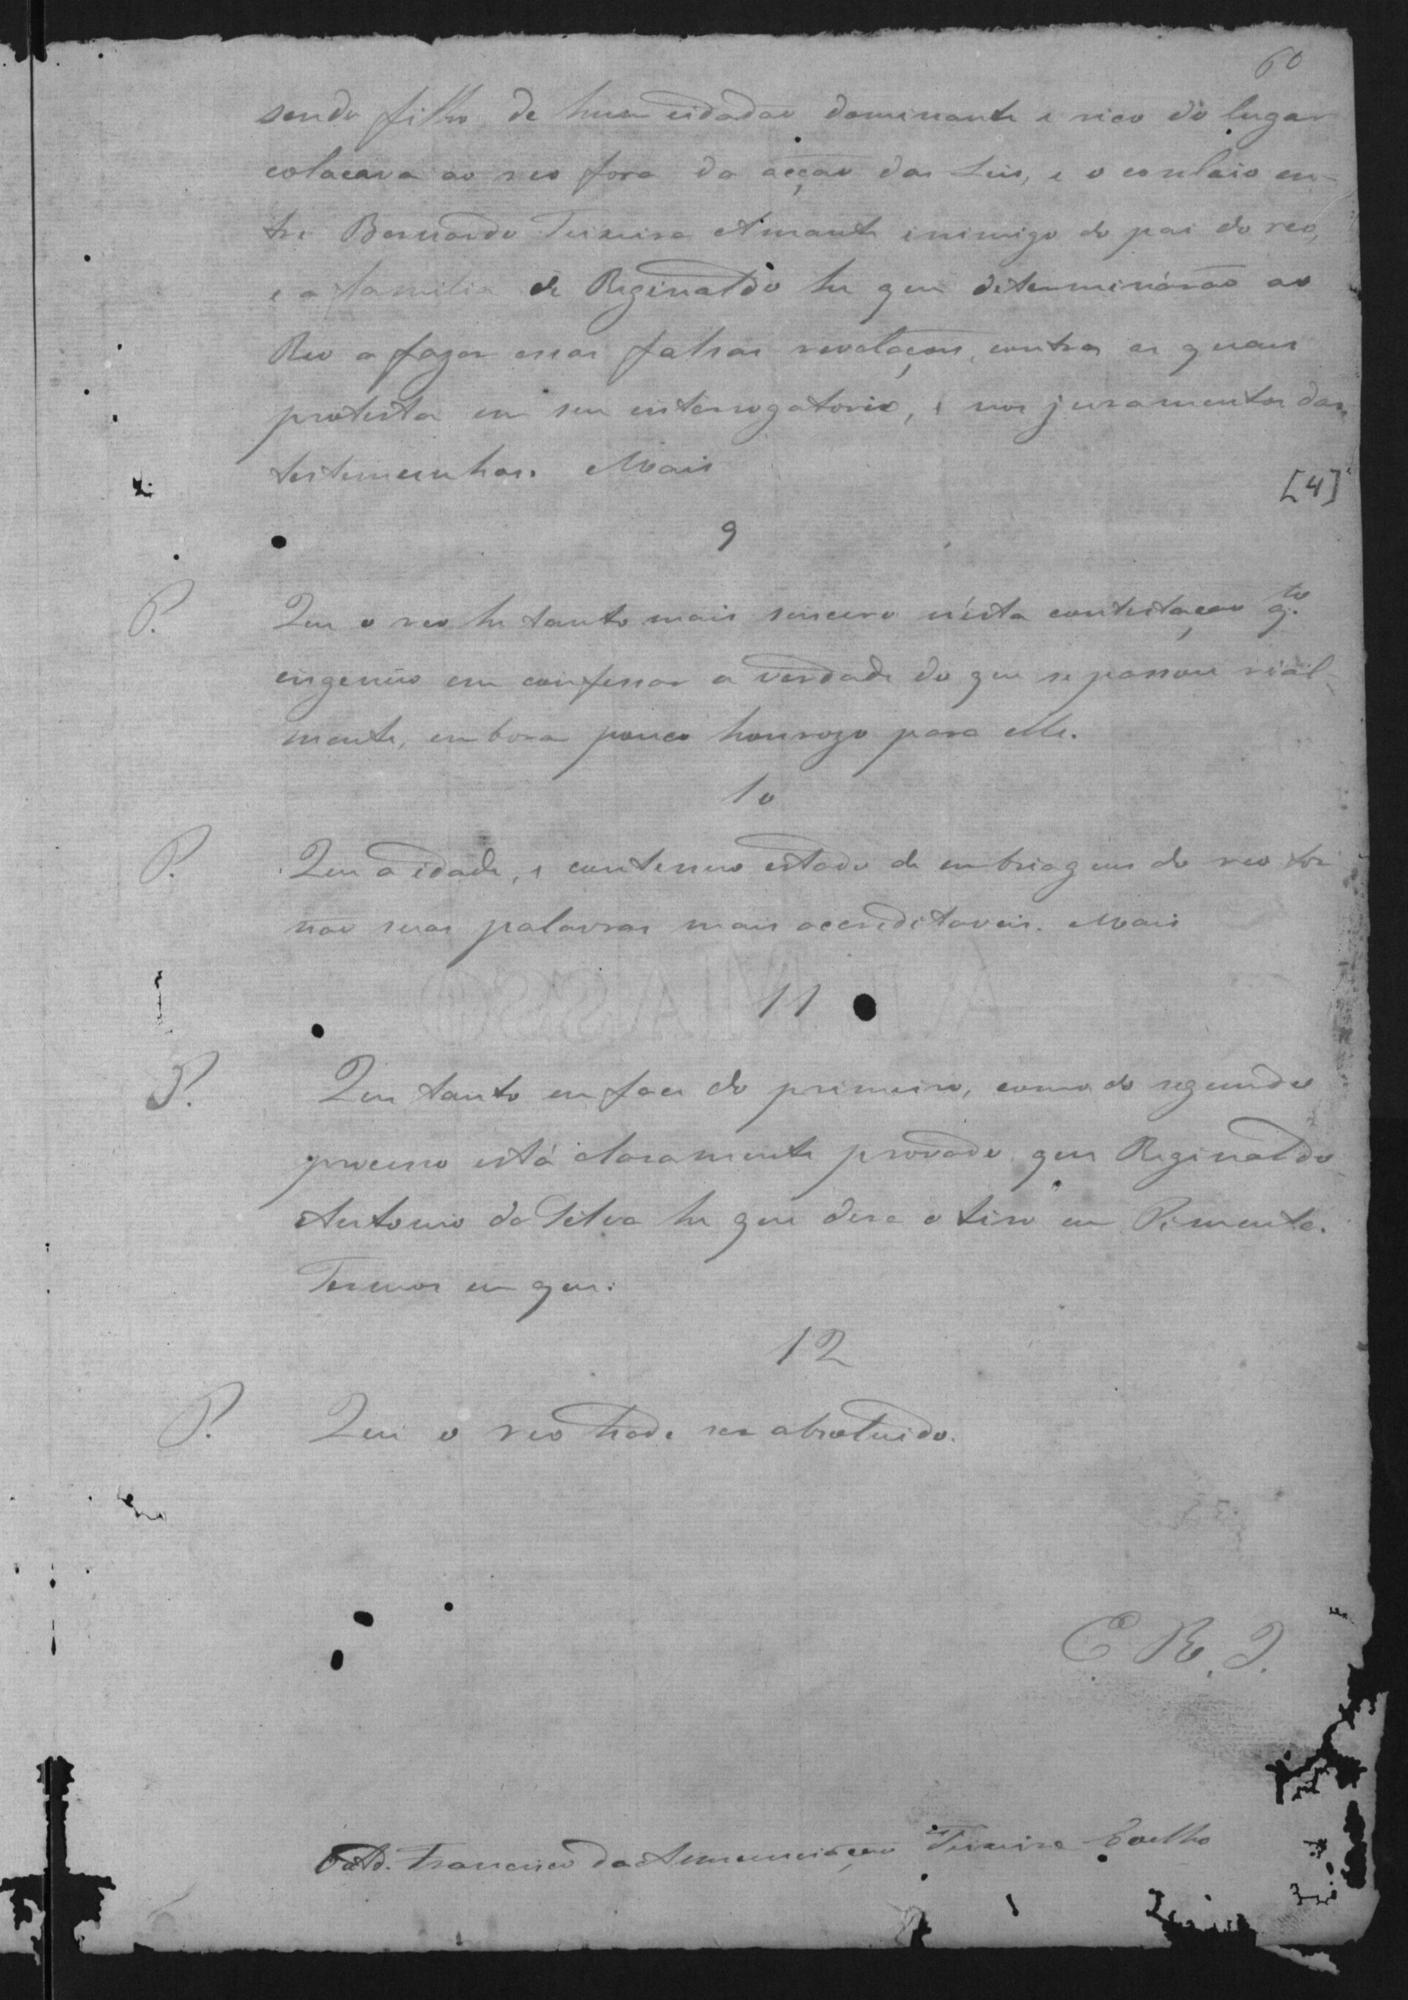 60
sendo filho de hum cidadão dominante e rico do lugar
colocava ao reo fora da acção das Leis, e o conluio en-
tre Bernardo Teixeira Amante inimigo do pai do reo,
e a familia de Reginaldo he que determinárão ao
Reo a fazer essas falsas revelações, contra as quais
protesta em seu interrogatorio, e nos juramentos das
testemunhas. Mais
[4]
9
P. Que o reo he tanto mais sincero n'ésta contestação q.to
ingenuo em confessar a verdade do que se passou rial-
mente, embora pouco honrozo para elle.
10
P. Que a idade, e contenuo estado de embriagues do reo tor
não suas palavras mais acreditaveis. Mais
11
P. Que tanto em face do primeiro, como do segundo
processo está claramente provado que Reginaldo
Antonio da Silva he que dera o tiro em Pimenta.
Termos em que:
12
P. Que o reo hade ser absolvido.
E. R. J.
Francisco da Annunciação Teixeira Coelho